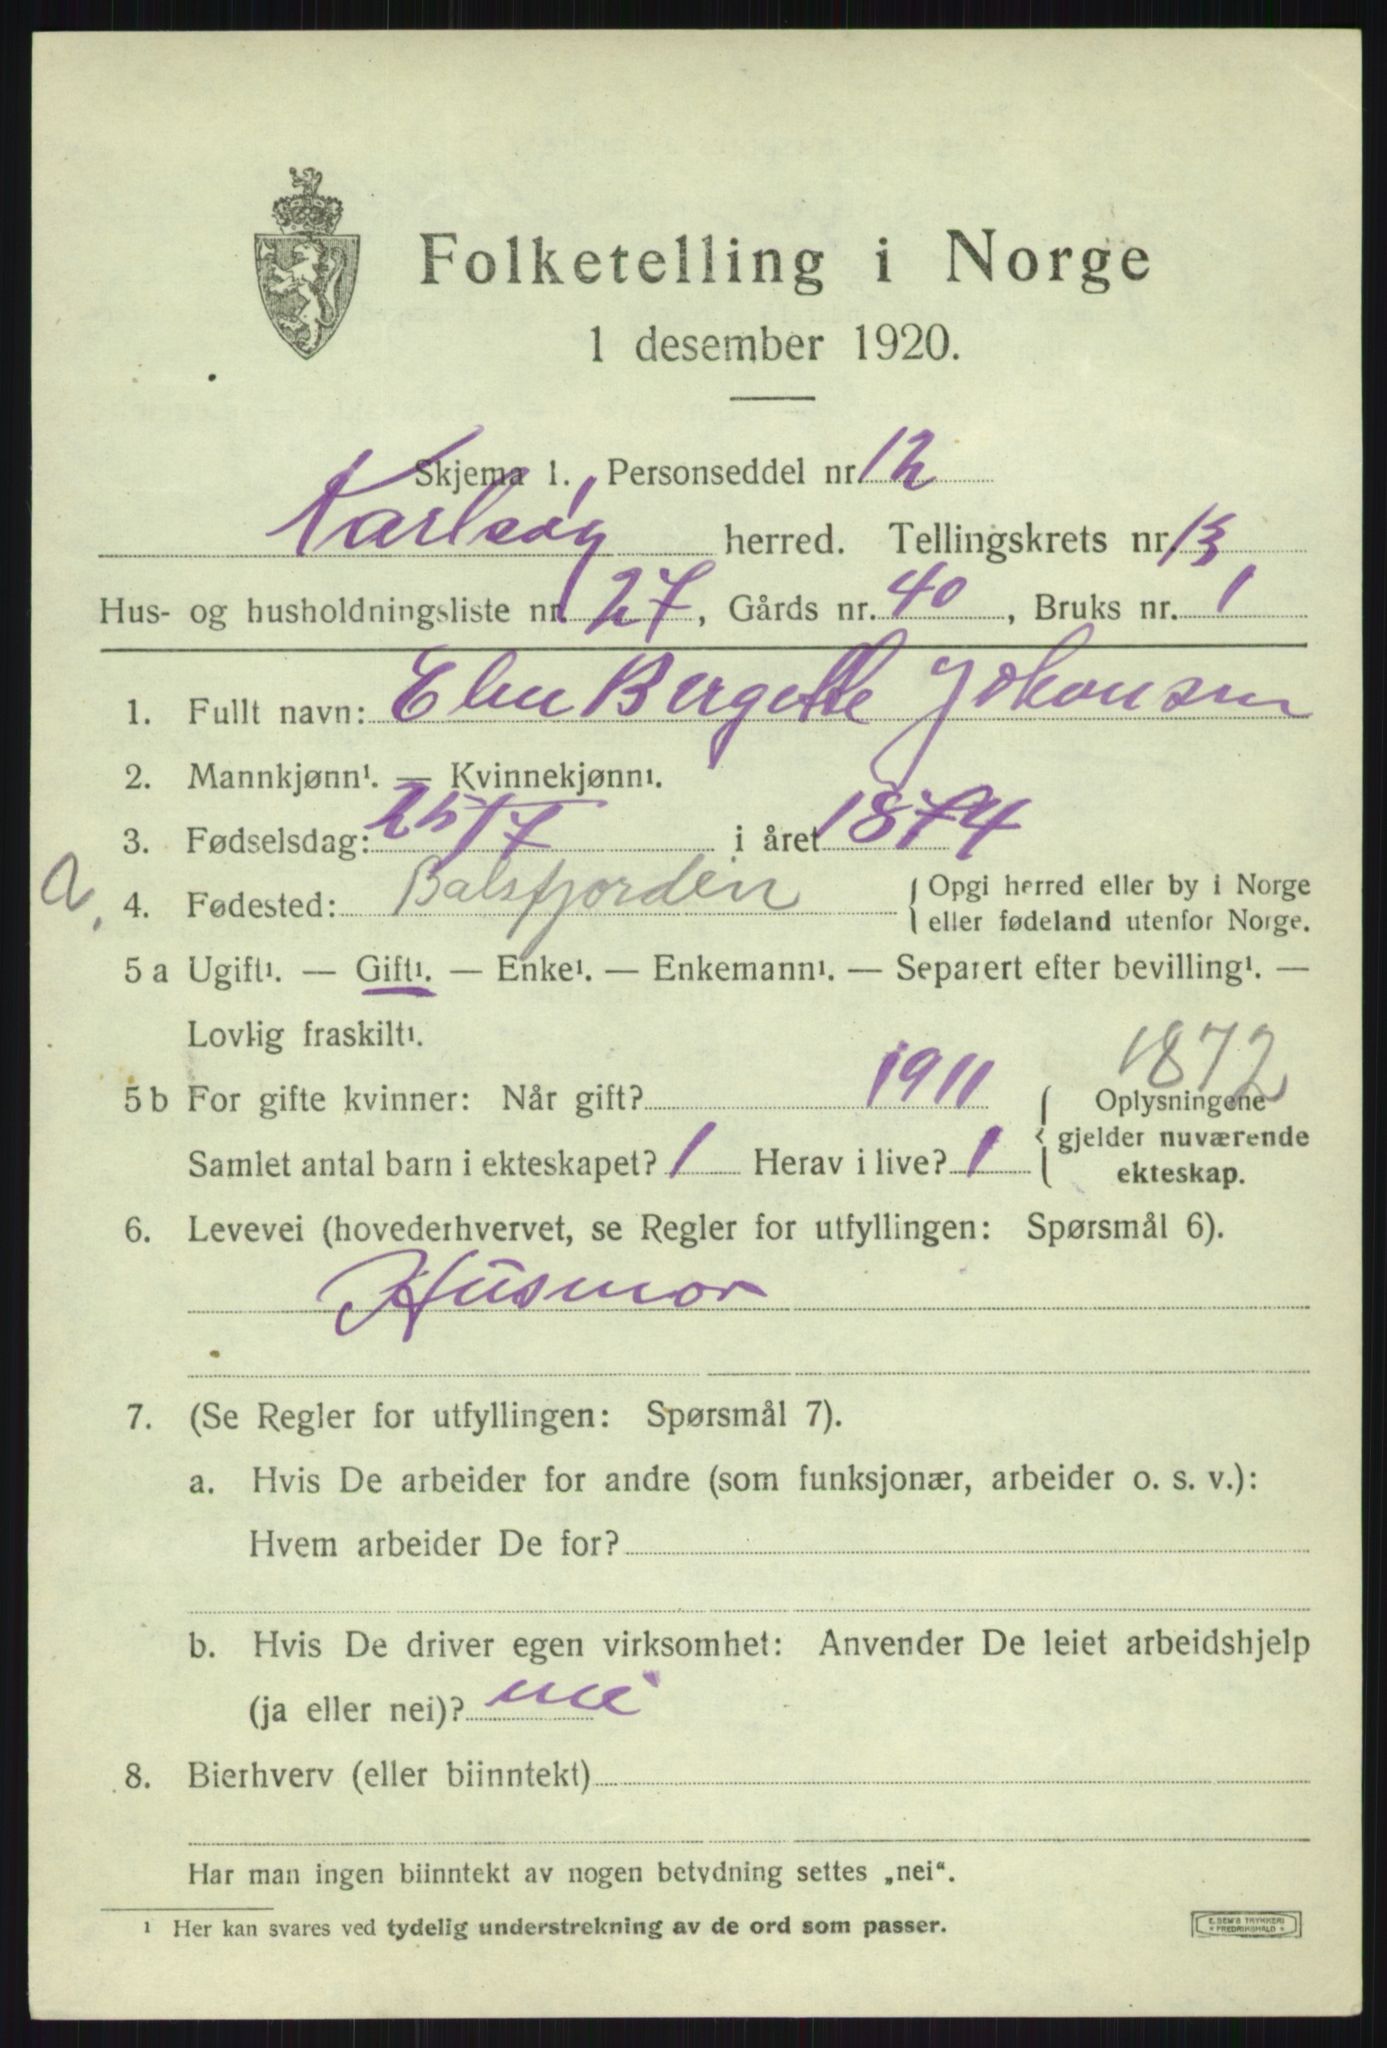 Folketelling i Norge
1 desember 1920.
Skjema 1. Personseddel nr. 12
Karlsøy herred. Tellingskrets nr. 13
Hus- og husholdningsliste nr. 27, Gårds nr. 40, Bruks nr. 1
1. Fullt navn: Elen Bergette Johansen
2. Mannkjønn¹. — Kvinnekjønn¹.
3. Fødselsdag: 25/7 i året 1874
a. 4. Fødested: Balsfjorden { Opgi herred eller by i Norge
eller fødeland utenfor Norge.
5 a Ugift¹. — Gift¹. — Enke¹. — Enkemann¹. — Separert efter bevilling¹. —
Lovlig fraskilt¹.
1872
5 b For gifte kvinner: Når gift? 1911 { Oplysningene
gjelder nuværende
Samlet antal barn i ekteskapet? 1 Herav i live? 1
ekteskap.
6. Levevei (hovederhvervet, se Regler for utfyllingen: Spørsmål 6).
Husmor
7. (Se Regler for utfyllingen: Spørsmål 7).
a. Hvis De arbeider for andre (som funksjonær, arbeider o. s. v.):
Hvem arbeider De for?
b. Hvis De driver egen virksomhet: Anvender De leiet arbeidshjelp
(ja eller nei)? nei
8. Bierhverv (eller biinntekt)
Har man ingen biinntekt av nogen betydning settes „nei“.
¹ Her kan svares ved tydelig understrekning av de ord som passer.
E. SEM'S TRYKKERI
* FREDRIKSHALD *